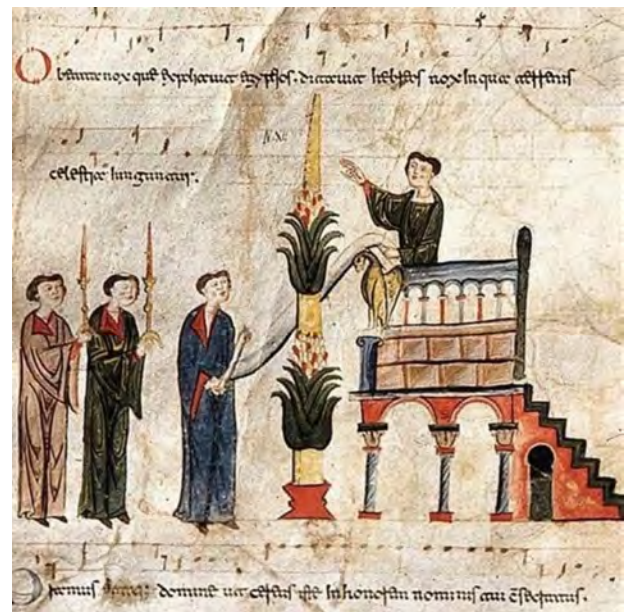 O beata nox que expoliauit egyptios. ditauit hebreos nox in qua terrenis
celestia iunguntur.
Oramus domine ut cereus iste in honorem nominis tui c̄secratus.